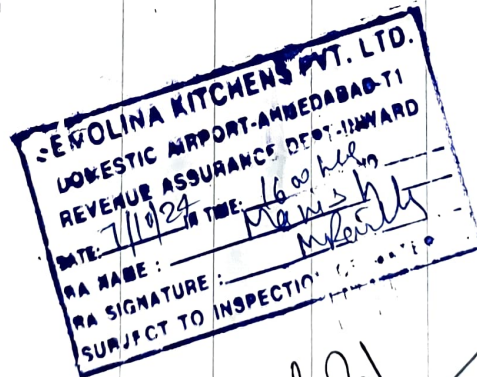 SEMOLINA KITCHENS PVT. LTD.
DOMESTIC AIRPORT-AHMEDABAD-T1
REVENUE ASSURANCE DEPT-INWARD
DATE: 7/10/24 IN TIME: 1600
RA NAME: Manish
RA SIGNATURE:
SUBJECT TO INSPECTION